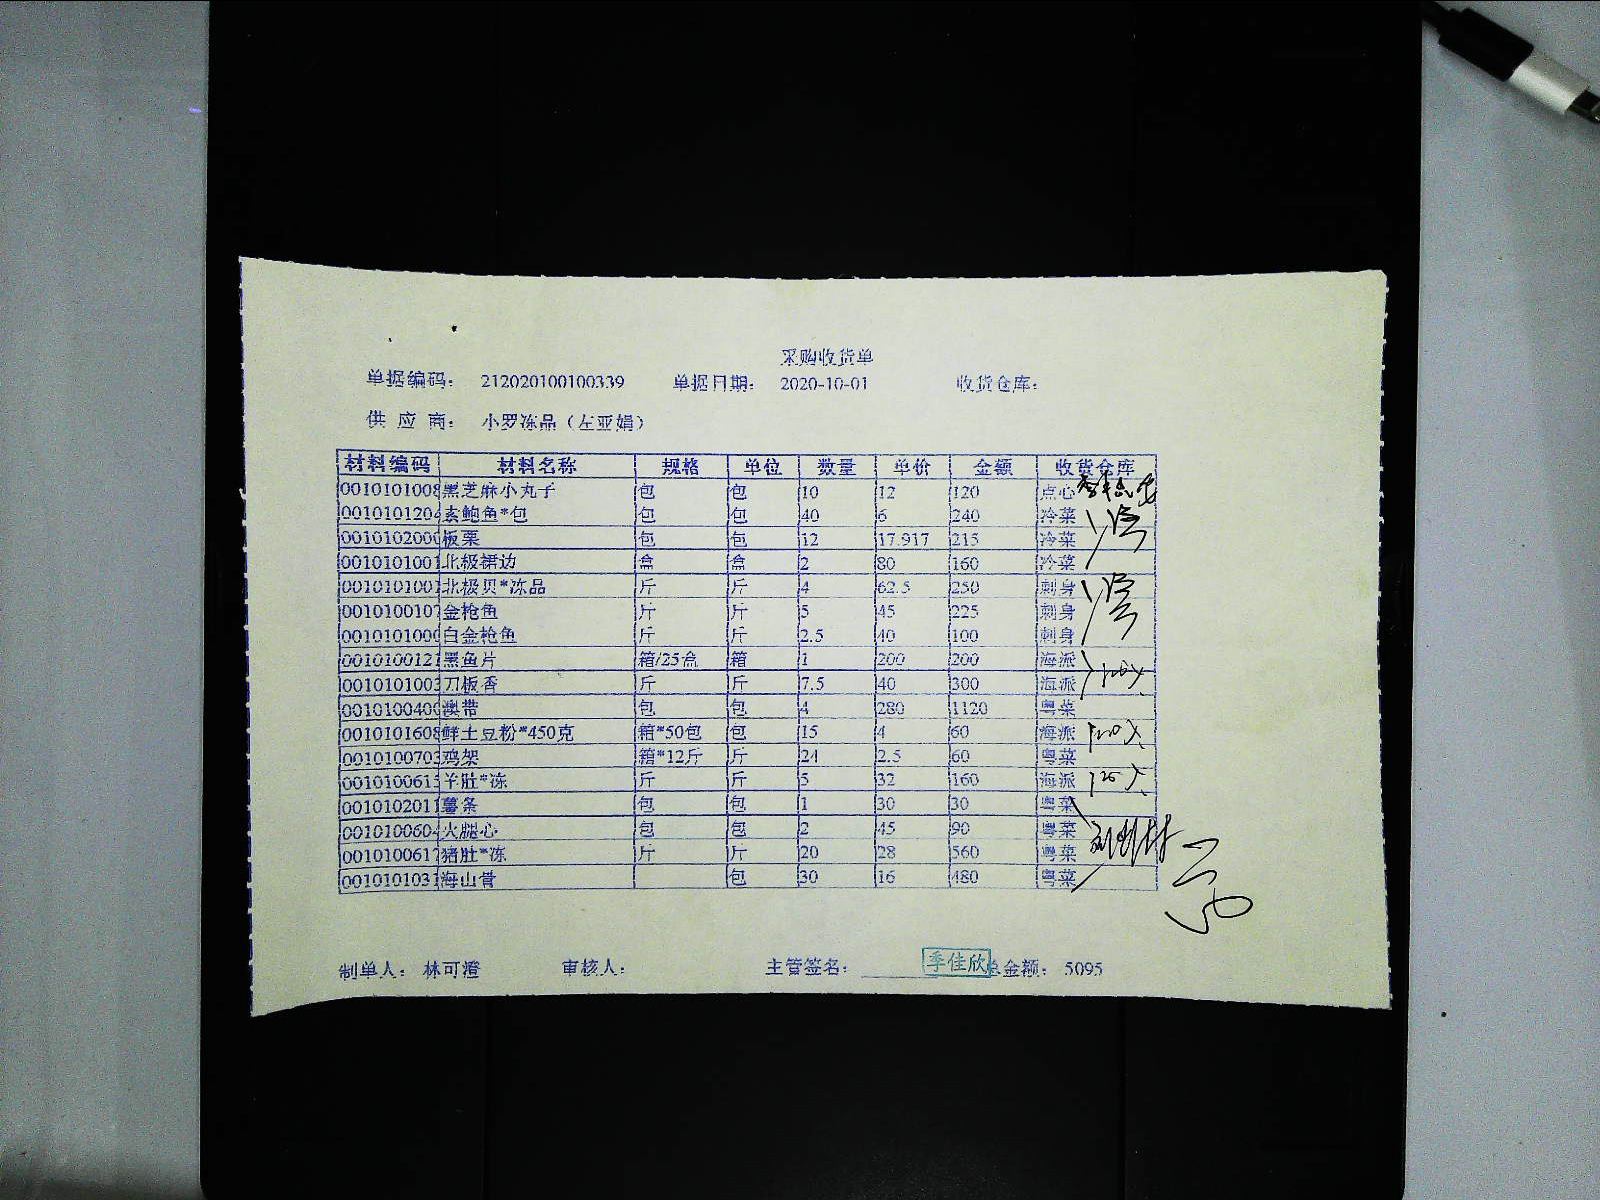 采购收货单
单据编码： 212020100100339 单据日期： 2020-10-01 收货仓库：
供 应 商： 小罗冻品（左亚娟）
材料编码 材料名称 规格 单位 数量 单价 金额 收货仓库
0010101008 黑芝麻小丸子 包 包 10 12 120 点心
0010101204 素鲍鱼*包 包 包 40 6 240 冷菜
0010102000 板栗 包 包 12 17.917 215 冷菜
0010101001 北极裙边 盒 盒 2 80 160 冷菜
0010101001 北极贝*冻品 斤 斤 4 62.5 250 刺身
0010100107 金枪鱼 斤 斤 5 45 225 刺身
0010101000 白金枪鱼 斤 斤 2.5 40 100 刺身
0010100121 黑鱼片 箱/25盒 箱 1 200 200 海派
0010101003 刀板香 斤 斤 7.5 40 300 海派
0010100400 澳带 包 包 4 280 1120 粤菜
0010101608 鲜土豆粉*450克 箱*50包 包 15 4 60 海派
0010100703 鸡架 箱*12斤 斤 24 2.5 60 粤菜
0010100615 羊肚*冻 斤 斤 5 32 160 海派
0010102011 薯条 包 包 1 30 30 粤菜
0010100604 火腿心 包 包 2 45 90 粤菜
0010100617 猪肚*冻 斤 斤 20 28 560 粤菜
0010101031 海山骨 包 30 16 480 粤菜
制单人： 林可澄 审核人： 主管签名： 季佳欣 总金额： 5095